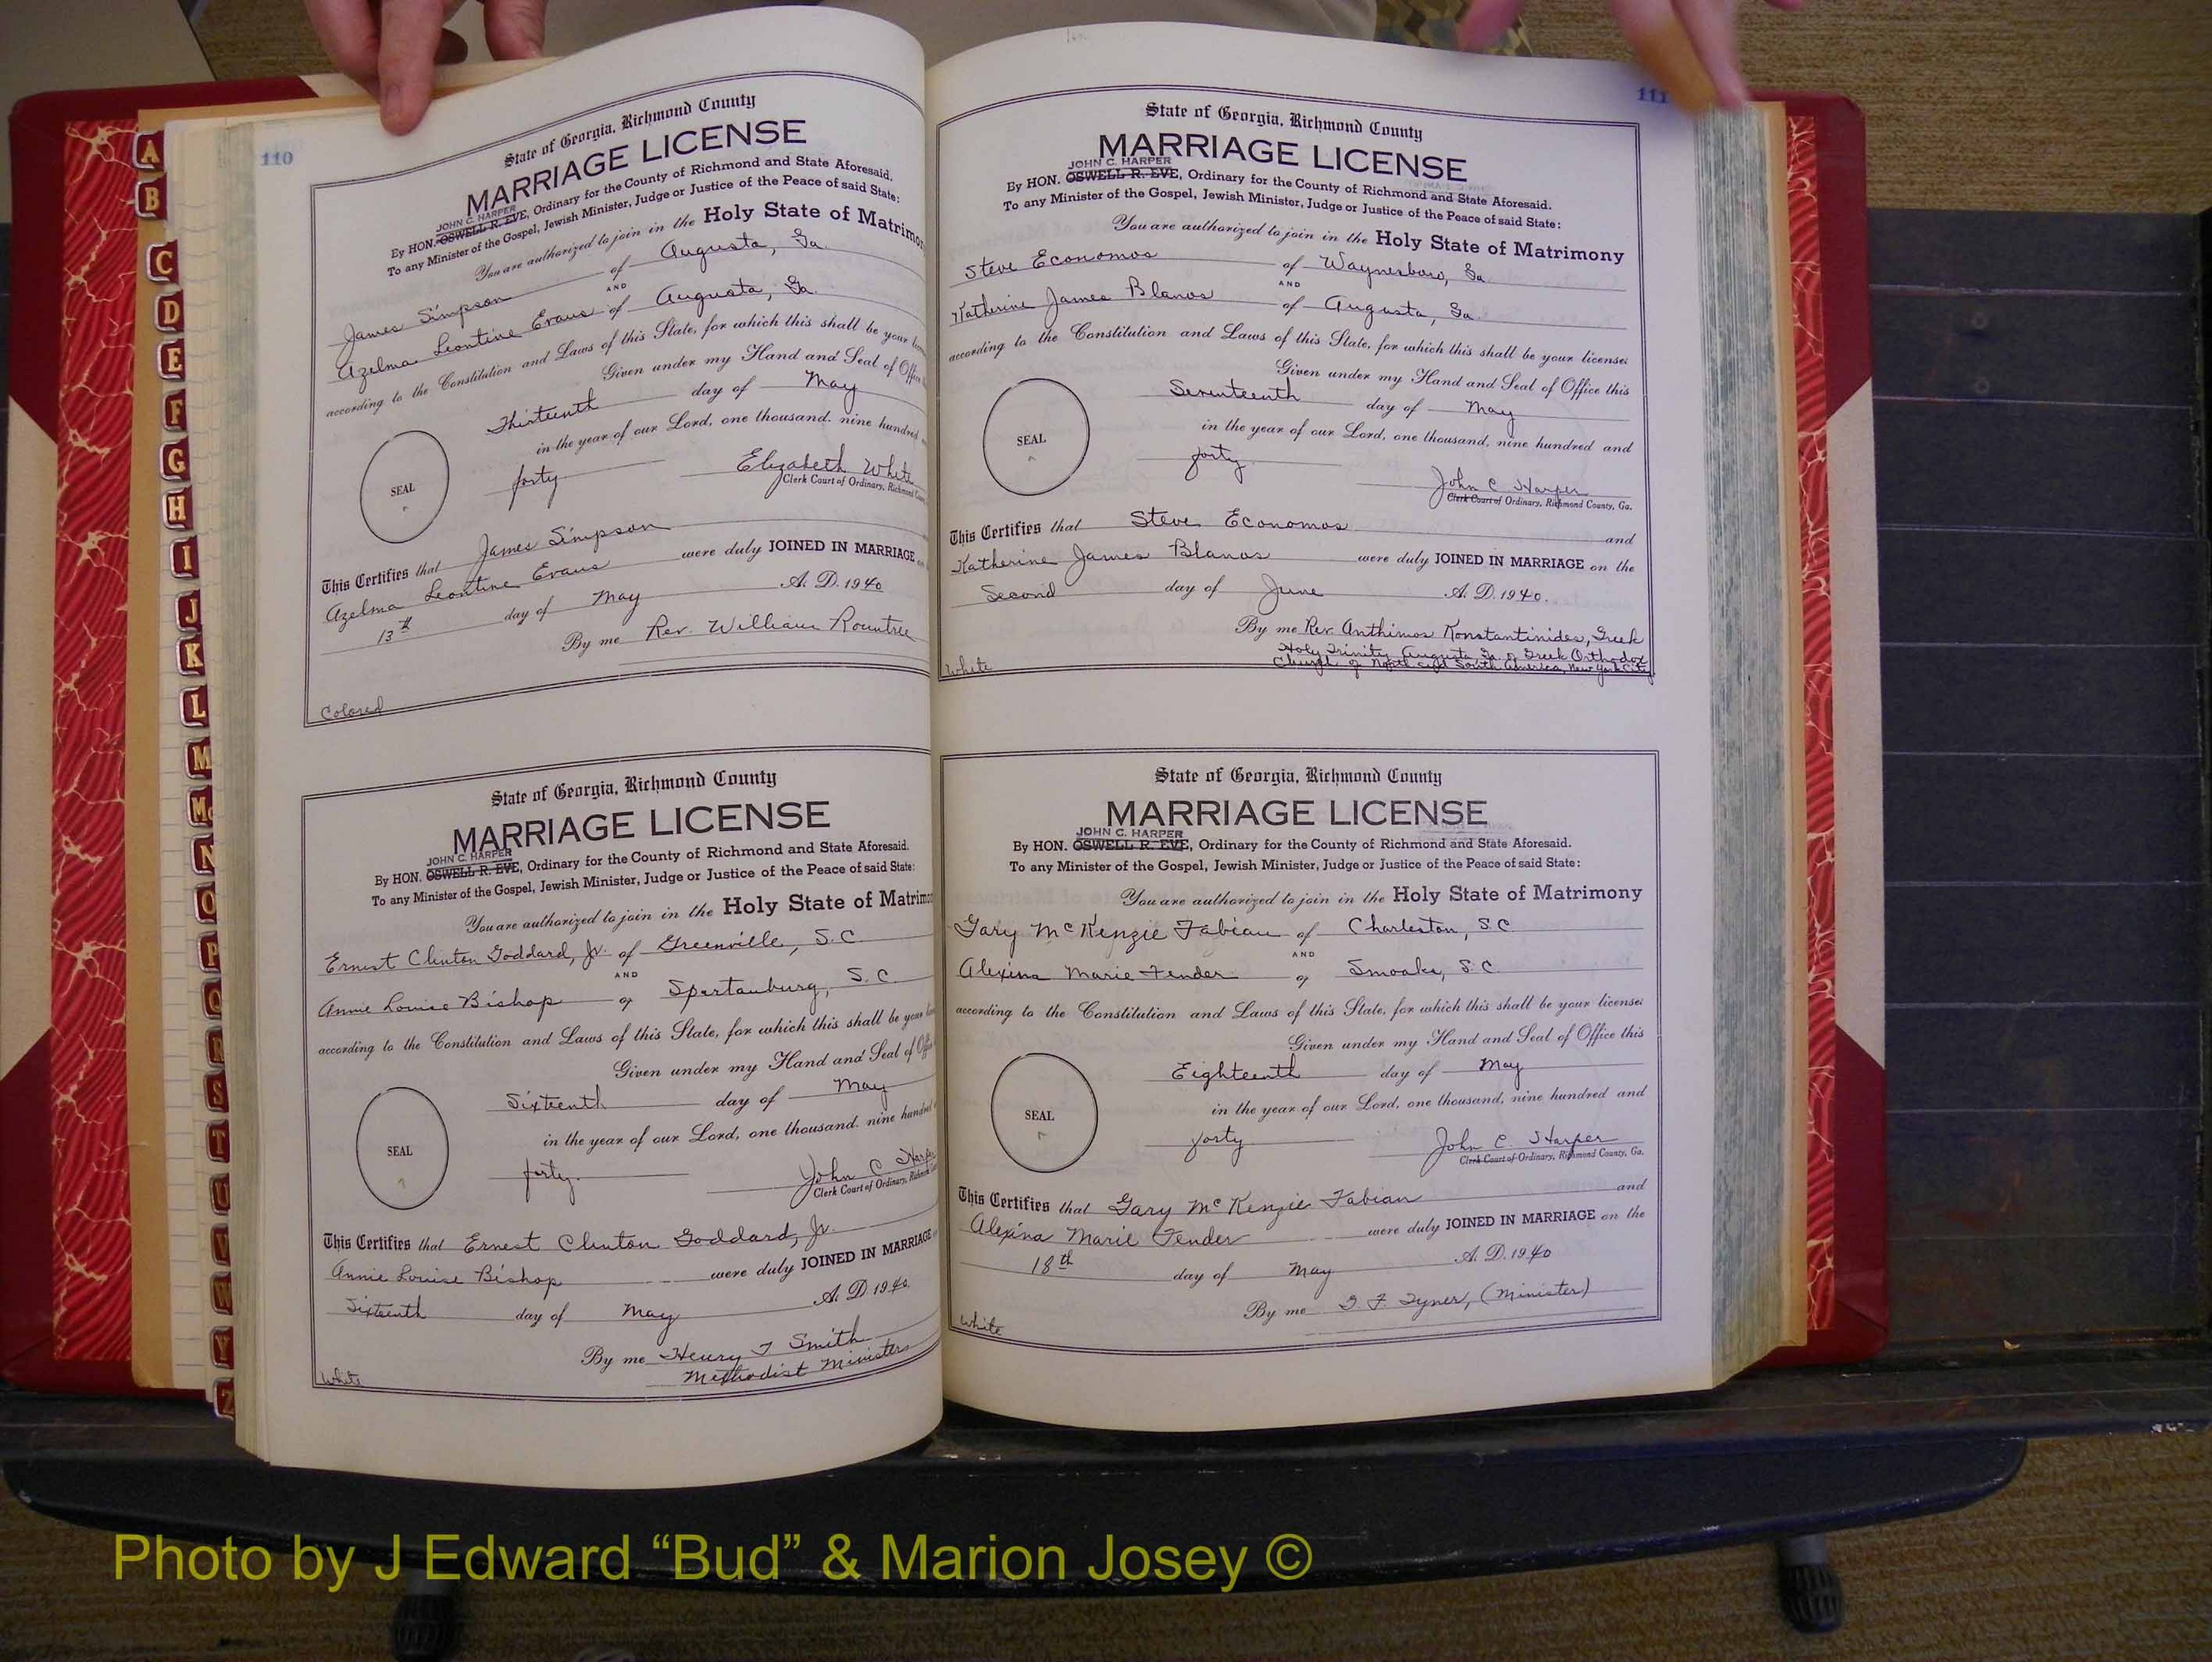 110
State of Georgia, Richmond County
MARRIAGE LICENSE
JOHN C. HARPER
By HON. OSWELL R. EVE, Ordinary for the County of Richmond and State Aforesaid.
To any Minister of the Gospel, Jewish Minister, Judge or Justice of the Peace of said State:
You are authorized to join in the Holy State of Matrimon
James Simpson of Augusta, Ga.
AND
Azelma Leontine Evans of Augusta, Ga.
according to the Constitution and Laws of this State, for which this shall be your
Given under my Hand and Seal of Offic
Thirteenth day of May
in the year of our Lord, one thousand, nine hundred
forty
Elizabeth White
Clerk Court of Ordinary, Richmond
SEAL
This Certifies that James Simpson
Azelma Leontine Evans were duly JOINED IN MARRIAGE
13th day of May A. D. 1940
By me Rev. William Rountree
Colored
State of Georgia, Richmond County
MARRIAGE LICENSE
JOHN C. HARPER
By HON. OSWELL R. EVE, Ordinary for the County of Richmond and State Aforesaid.
To any Minister of the Gospel, Jewish Minister, Judge or Justice of the Peace of said State:
You are authorized to join in the Holy State of Matrimo
Ernest Clinton Goddard, Jr. of Greenville, S.C.
AND
Annie Louise Bishop of Spartanburg, S.C.
according to the Constitution and Laws of this State, for which this shall be your
Given under my Hand and Seal of Off
Sixteenth day of May
in the year of our Lord, one thousand, nine hundred
forty.
John C Harper
Clerk Court of Ordinary, Richmond
SEAL
This Certifies that Ernest Clinton Goddard, Jr.
Annie Louise Bishop were duly JOINED IN MARRIAGE
Sixteenth day of May A. D. 1940
By me Henry T Smith
Methodist Minister
White
111
State of Georgia, Richmond County
MARRIAGE LICENSE
JOHN C. HARPER
By HON. OSWELL R. EVE, Ordinary for the County of Richmond and State Aforesaid.
To any Minister of the Gospel, Jewish Minister, Judge or Justice of the Peace of said State:
You are authorized to join in the Holy State of Matrimony
Steve Economos of Waynesboro, Ga.
AND
Katherine James Blanos of Augusta, Ga.
according to the Constitution and Laws of this State, for which this shall be your license:
Given under my Hand and Seal of Office this
Seventeenth day of May
in the year of our Lord, one thousand, nine hundred and
forty.
John C Harper
Clerk Court of Ordinary, Richmond County, Ga.
SEAL
This Certifies that Steve Economos and
Katherine James Blanos were duly JOINED IN MARRIAGE on the
Second day of June A. D. 1940.
By me Rev. Anthimos Konstantinides, Greek
Holy Trinity Augusta Ga. of Greek Orthodox
Church of North and South America, New York City
White
State of Georgia, Richmond County
MARRIAGE LICENSE
JOHN C. HARPER
By HON. OSWELL R. EVE, Ordinary for the County of Richmond and State Aforesaid.
To any Minister of the Gospel, Jewish Minister, Judge or Justice of the Peace of said State:
You are authorized to join in the Holy State of Matrimony
Gary McKenzie Fabian of Charleston, S.C.
AND
Alexina Marie Fender of Smoaks, S.C.
according to the Constitution and Laws of this State, for which this shall be your license:
Given under my Hand and Seal of Office this
Eighteenth day of May
in the year of our Lord, one thousand, nine hundred and
forty.
John C. Harper
Clerk Court of Ordinary, Richmond County, Ga.
SEAL
This Certifies that Gary McKenzie Fabian and
Alexina Marie Fender were duly JOINED IN MARRIAGE on the
18th day of May A. D. 1940
By me F. Tyner, (Minister)
White
A
B
C
D
E
F
G
H
I
J
K
L
M
Mc
N
O
P
Q
R
S
T
U
V
W
Y
Z
Photo by J Edward “Bud” & Marion Josey ©